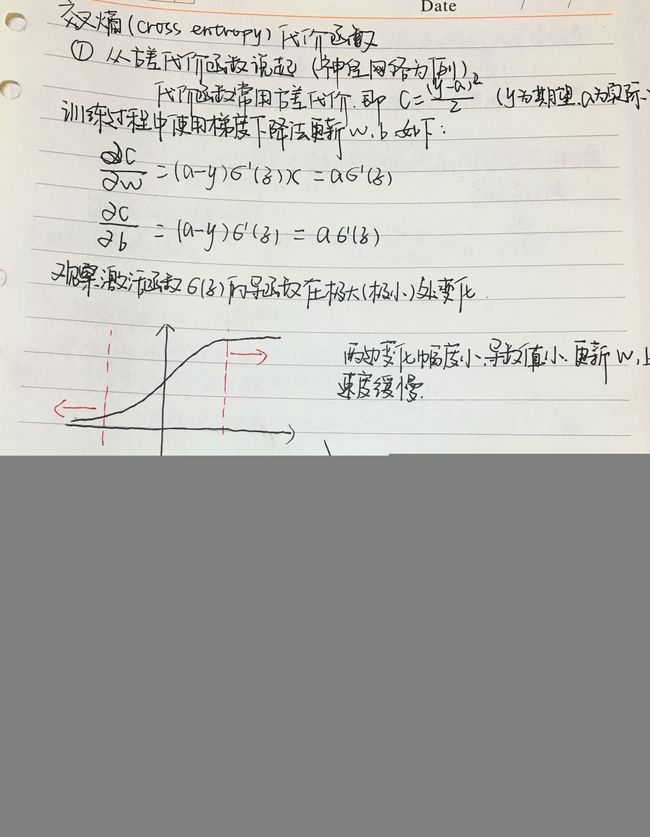 Date / /
交叉熵(cross entropy)代价函数
① 从方差代价函数说起(神经网络为例)
代价函数常用方差代价.即 C=(y-a)²/2 (y为期望.a为实际
训练过程中使用梯度下降法更新w,b 如下:
∂C/∂w = (a-y)σ'(z)x = aσ'(z)
∂C/∂b = (a-y)σ'(z) = aσ'(z)
观察激活函数σ(z)的导函数在极大(极小)处变化.
两边变化幅度小.导数值小.更新w,
速度缓慢.